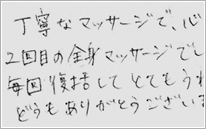 丁寧なマッサージで、心
2回目の全身マッサージでし
毎回復活してとてもうれ
どうもありがとうございま